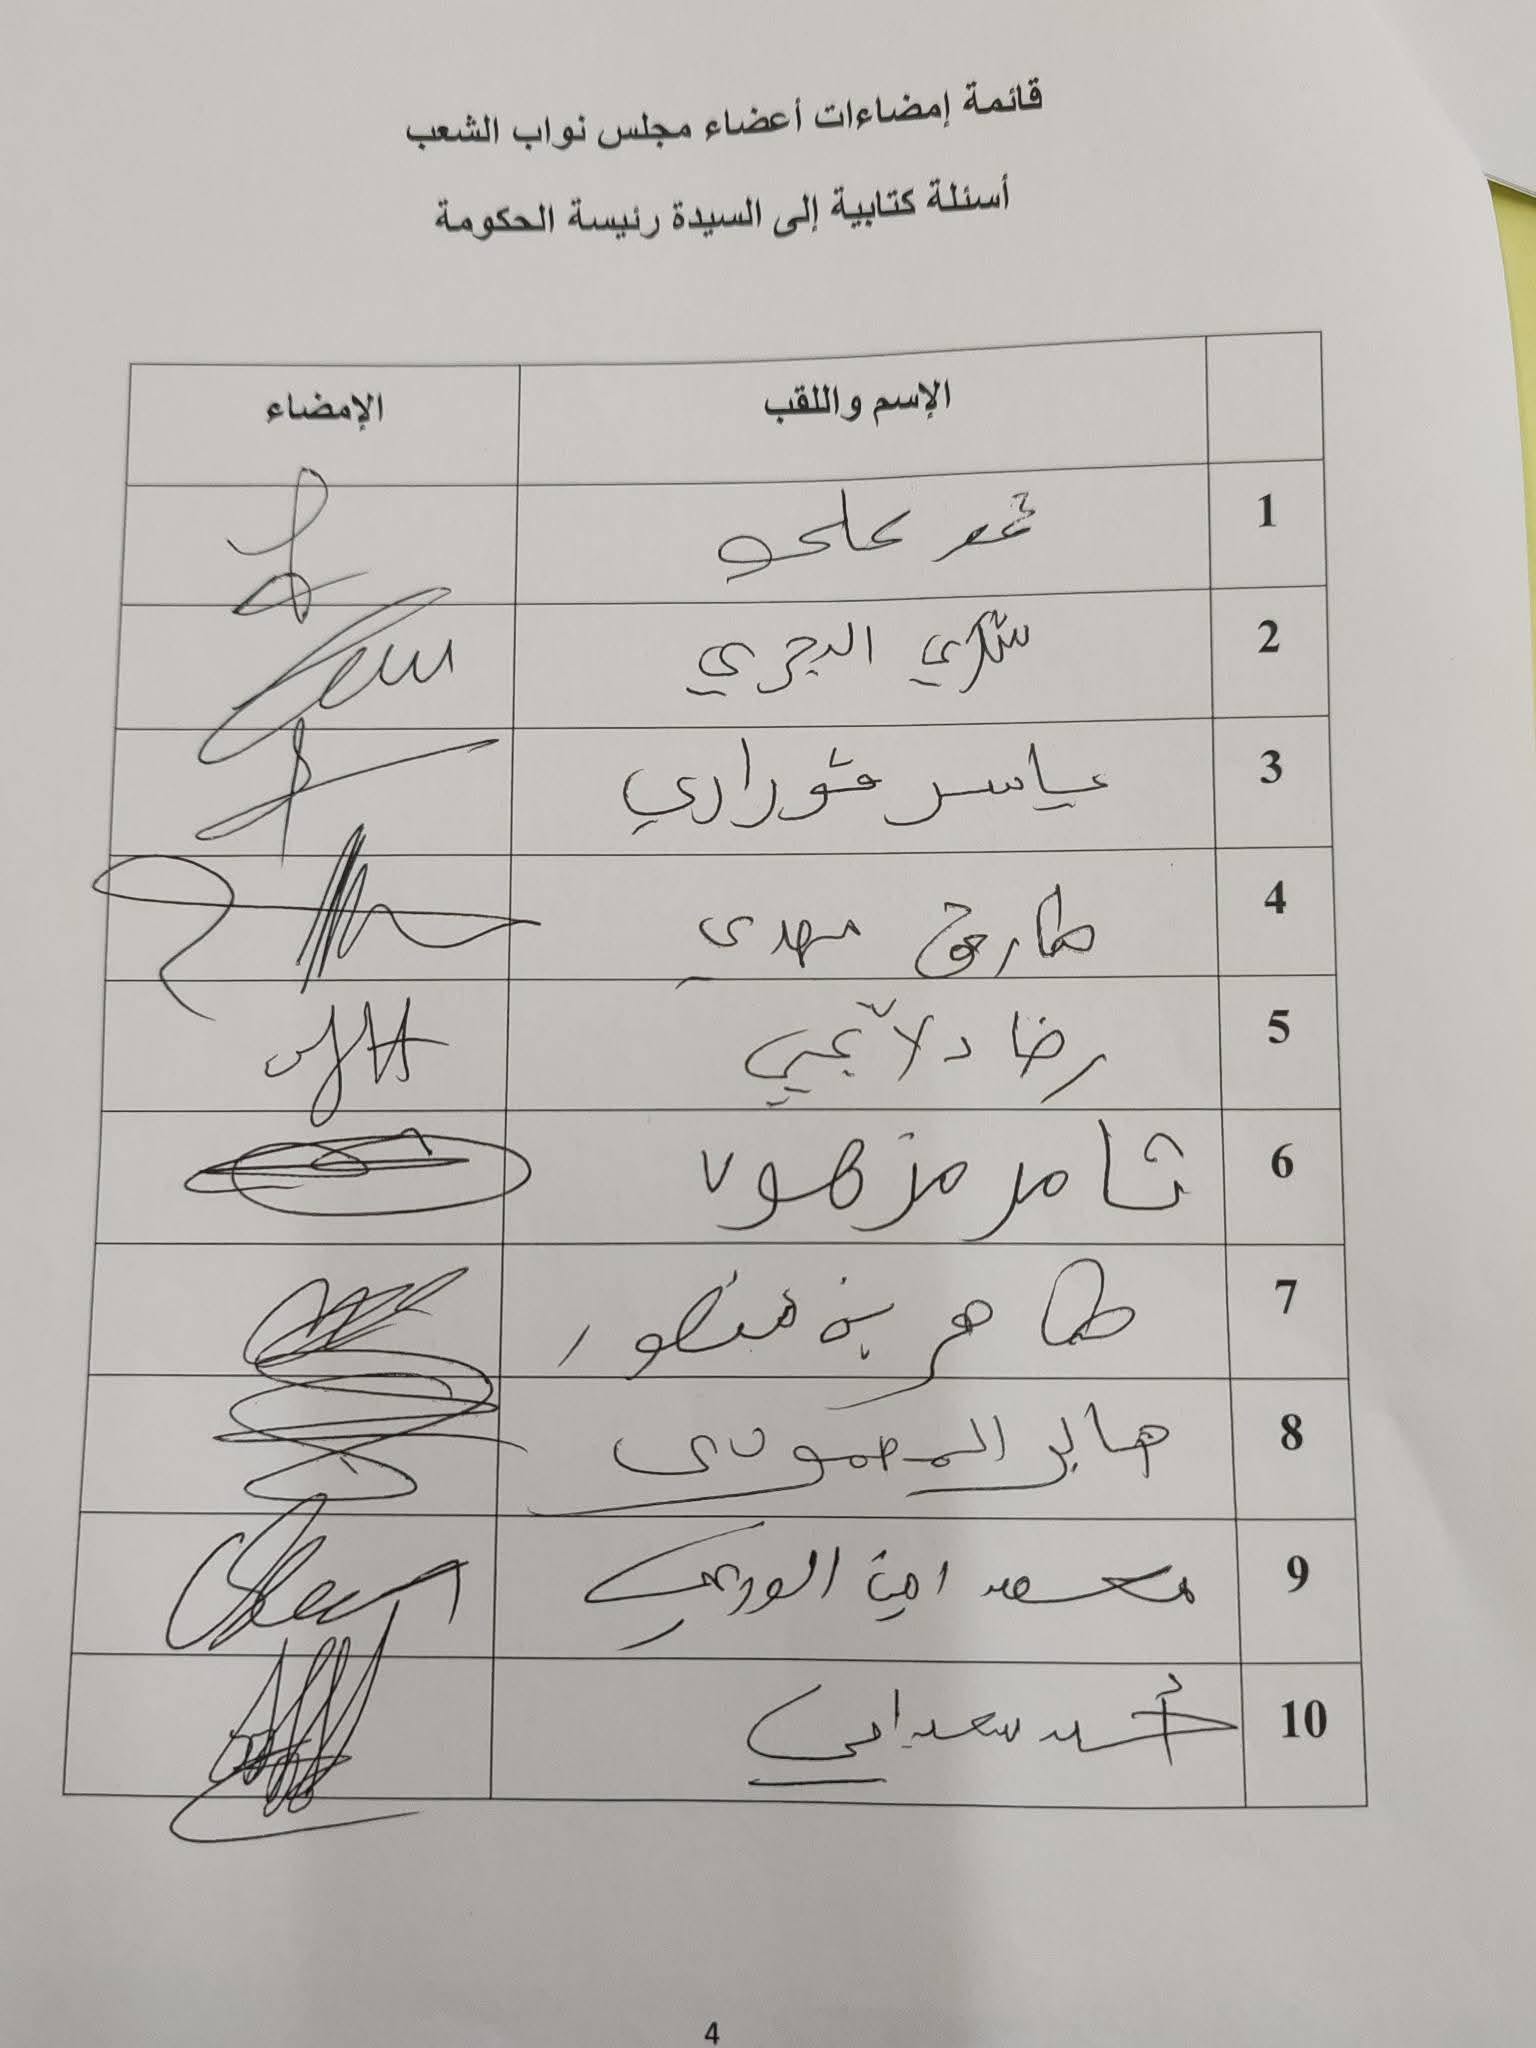 قائمة إمضاءات أعضاء مجلس نواب الشعب
أسئلة كتابية إلى السيدة رئيسة الحكومة
الإسم واللقب الإمضاء
1 محمد علي
2 شكري البحري
3 ياسر قوراري
4 طارق مهدي
5 رضا دلاعي
6 ثامر مزهود
7 طاهر بن منصور
8 صابر المصمودي
9 محمد امين الورغي
10 أحمد سعيداني
4